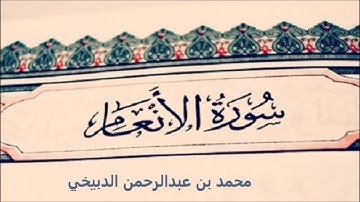 سُورَةُ الأَنْعَامِ
محمد بن عبدالرحمن الدبيخي